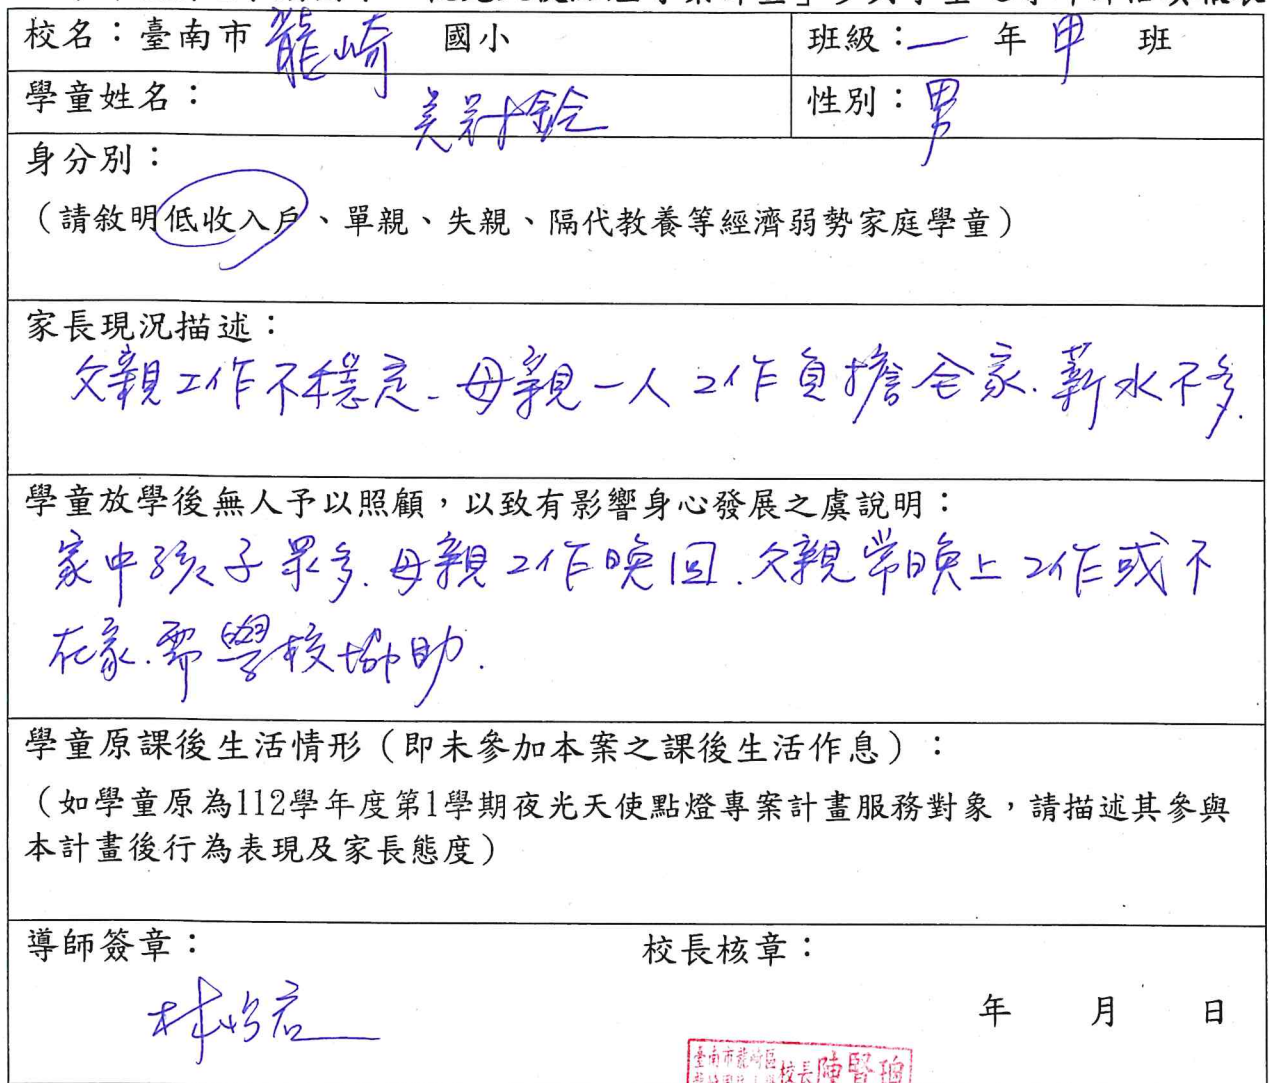 校名：臺南市 龍崎 國小
班級：一 年 甲 班
學童姓名：
性別：男
身分別：
（請敘明低收入戶、單親、失親、隔代教養等經濟弱勢家庭學童）
家長現況描述：
父親工作不穩定、母親一人工作負擔全家、薪水不多.
學童放學後無人予以照顧，以致有影響身心發展之虞說明：
家中孩子眾多、母親工作晚回、父親常晚上工作或不
在家、需學校協助.
學童原課後生活情形（即未參加本案之課後生活作息）：
（如學童原為112學年度第1學期夜光天使點燈專案計畫服務對象，請描述其參與
本計畫後行為表現及家長態度）
導師簽章：
校長核章：
年 月 日
臺南市龍崎區
校長陳賢